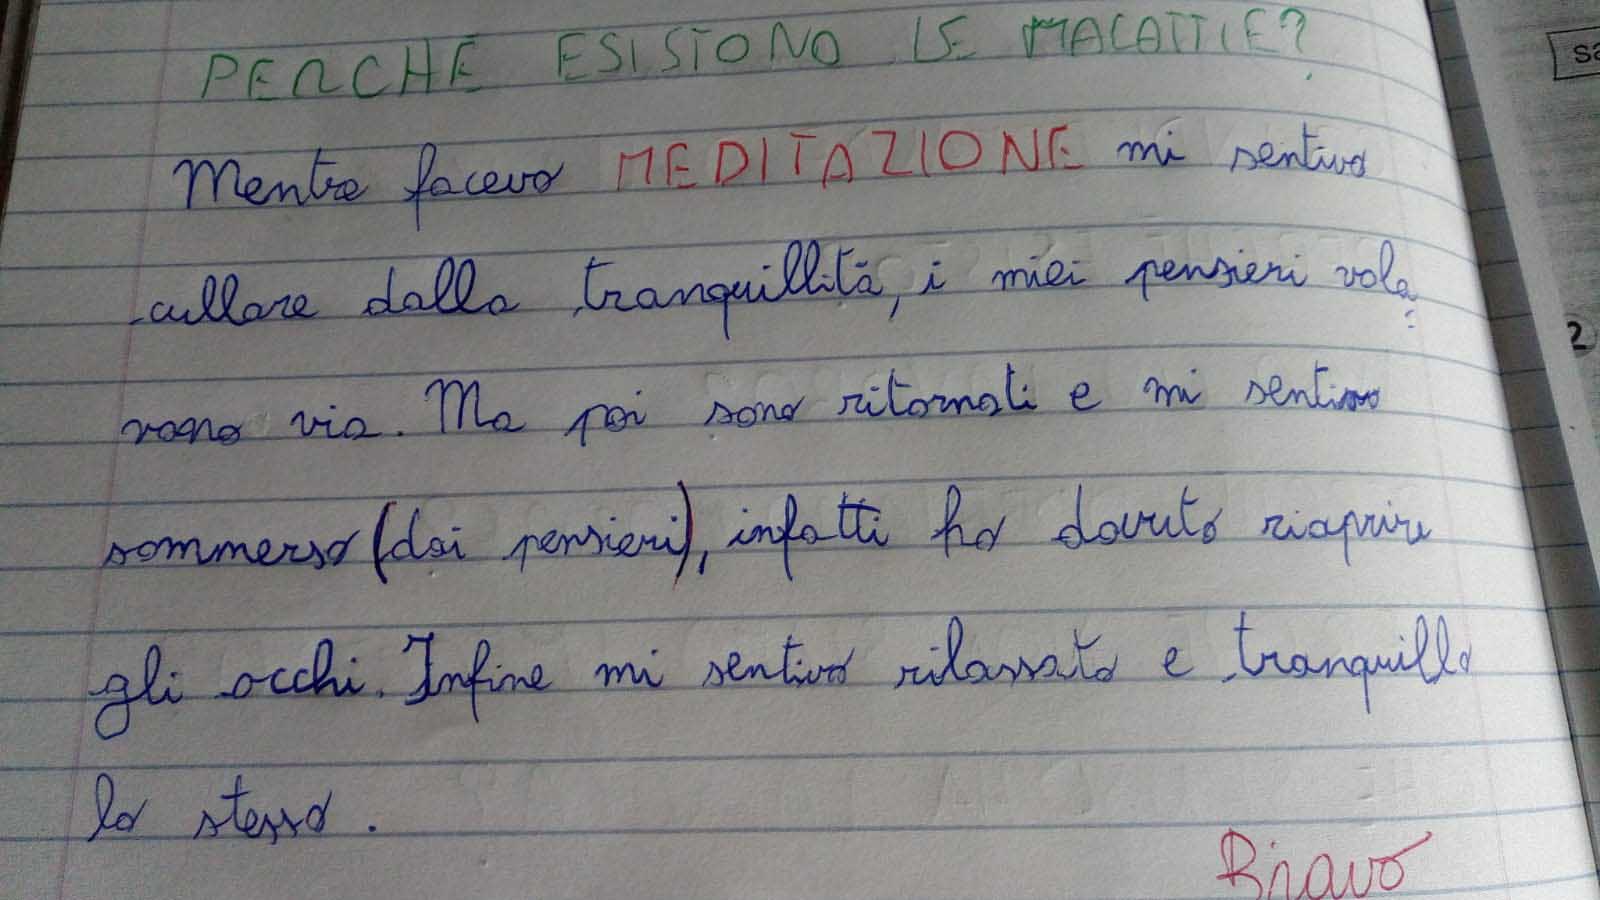 PERCHÉ ESISTONO LE MALATTIE?
Mentre facevo MEDITAZIONE mi sentivo
cullare dalla tranquillità, i miei pensieri vola
vano via. Ma poi sono ritornati e mi sentivo
sommerso (dai pensieri), infatti ho dovuto riaprire
gli occhi. Infine mi sentivo rilassato e tranquillo
lo stesso.
Bravo
2